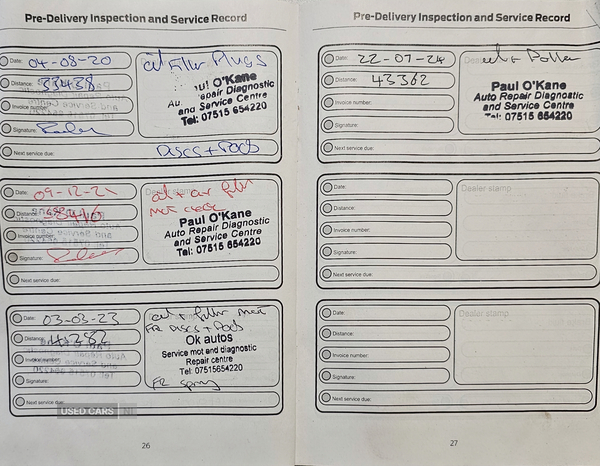 Pre-Delivery Inspection and Service Record
Date: 04-08-20
Distance: 33438
Invoice number:
Signature:
Next service due: DISCS + PADS
oil Filter Plugs
Paul O'Kane
Auto Repair Diagnostic
and Service Centre
Tel: 07515 654220
Date: 09-12-21
Distance: 38416
Invoice number:
Signature:
Next service due:
Dealer stamp
oil + air filter
mot check
Paul O'Kane
Auto Repair Diagnostic
and Service Centre
Tel: 07515 654220
Date: 03-03-23
Distance:
Invoice number:
Signature:
Next service due:
oil + filter mot
FR DISCS + PADS
Ok autos
Service mot and diagnostic
Repair centre
Tel: 07515654220
FR spring
USED CARS NI
26
Pre-Delivery Inspection and Service Record
Date: 22-07-24
Distance: 43362
Invoice number:
Signature:
Next service due:
Paul O'Kane
Auto Repair Diagnostic
and Service Centre
Tel: 07515 654220
Date:
Distance:
Invoice number:
Signature:
Next service due:
Dealer stamp
Date:
Distance:
Invoice number:
Signature:
Next service due:
Dealer stamp
27